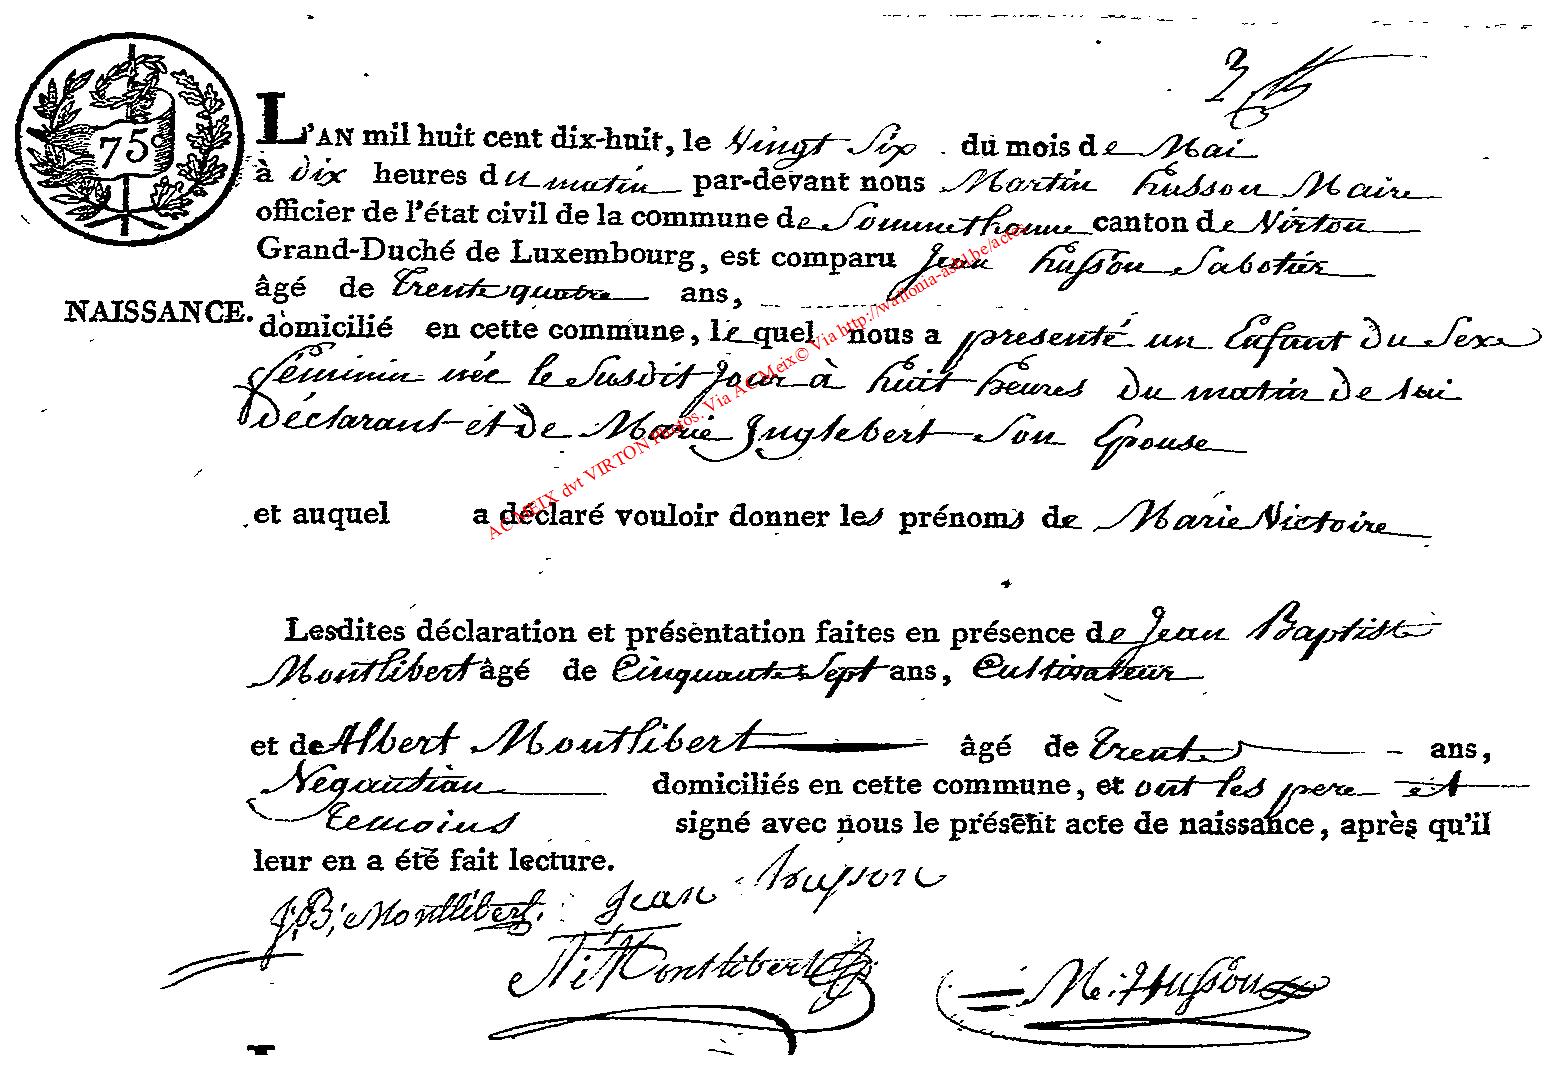 75c
3
L'AN mil huit cent dix-huit, le Vingt Six du mois de Mai
à dix heures du matin par-devant nous Martin husson Maire
officier de l'état civil de la commune de Sommethonne canton de Virton
Grand-Duché de Luxembourg, est comparu Jean husson Sabotier
âgé de trente quatre ans,
NAISSANCE.
domicilié en cette commune, le quel nous a presenté un Enfant du Sexe
féminin née le Susdit Jour à huit heures du matin de lui
déclarant et de Marie Inglebert Son Epouse
et auquel a déclaré vouloir donner les prénoms de Marie Victoire
Lesdites déclaration et présentation faites en présence de Jean Baptiste
Montlibert âgé de Cinquante Sept ans, Cultivateur
et de Albert Montlibert âgé de trente ans,
Négautian domiciliés en cette commune, et ont les pere et
temoins signé avec nous le présent acte de naissance, après qu'il
leur en a été fait lecture.
J:B: Montlibert. Jean husson
Montlibert M: Husson
AC MEIX dvt VIRTON Photos. Via AC Meix© Via http://wallonia-asbl.be/actes